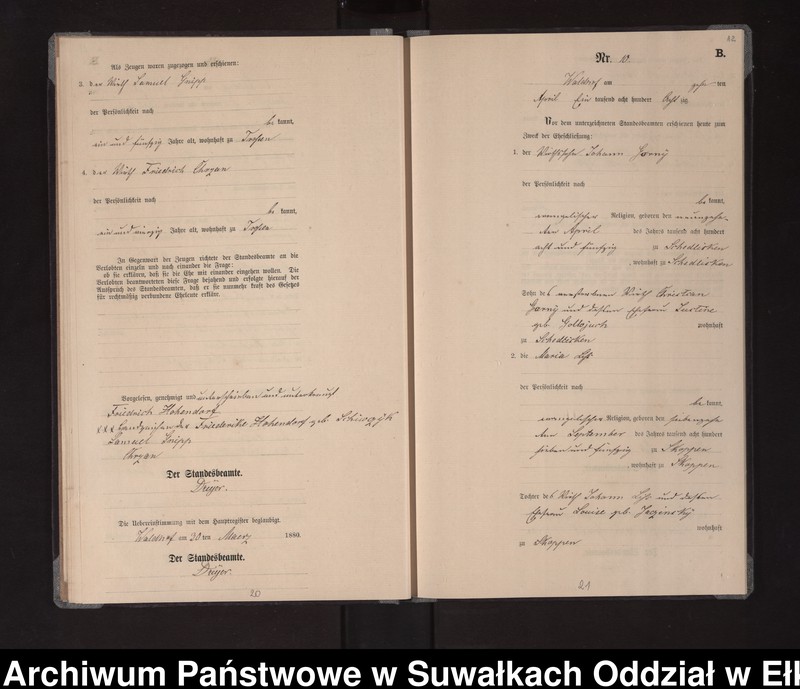 Als Zeugen waren zugezogen und erschienen:
3. der Wirth Samuel
der Persönlichkeit nach
be kannt,
ein und fünfzig Jahre alt, wohnhaft zu
4. der Wirth Friedrich Chrzan
der Persönlichkeit nach
be kannt,
ein und vierzig Jahre alt, wohnhaft zu
In Gegenwart der Zeugen richtete der Standesbeamte an die
Verlobten einzeln und nach einander die Frage:
ob sie erklären, daß sie die Ehe mit einander eingehen wollen. Die
Verlobten beantworteten diese Frage bejahend und erfolgte hierauf der
Ausspruch des Standesbeamten, daß er sie nunmehr kraft des Gesetzes
für rechtmäßig verbundene Eheleute erkläre.
Vorgelesen, genehmigt und unterschrieben und unterkreuzt
Friedrich Hohendorf
xxx Handzeichen der Friederike Hohendorf geb
Samuel
Chrzan
Der Standesbeamte.
Dreyer.
Die Uebereinstimmung mit dem Hauptregister beglaubigt.
Waldhof am 30 ten Maerz 1880.
Der Standesbeamte.
Dreyer.
20
12
B.
Nr. 10.
Waldhof am ten
April Ein tausend acht hundert Acht zig
Vor dem unterzeichneten Standesbeamten erschienen heute zum
Zweck der Eheschließung:
1. der Wirthssohn Johann Gorny
der Persönlichkeit nach
be kannt,
evangelischer Religion, geboren den neunzehn-
ten April des Jahres tausend acht hundert
acht und fünfzig zu Schedlisken
, wohnhaft zu Schedlisken
Sohn des verstorbenen Wirth Christian
Gorny und dessen Ehefrau Justine
geb. wohnhaft
zu Schedlisken
2. die Maria
der Persönlichkeit nach
be kannt,
evangelischer Religion, geboren den siebenzehn
ten September des Jahres tausend acht hundert
sieben und fünfzig zu Skoppen
, wohnhaft zu Skoppen
Tochter des Wirth Johann und dessen
Ehefrau Louise geb.
wohnhaft
zu Skoppen
21
Archiwum Państwowe w Suwałkach Oddział w Ełk